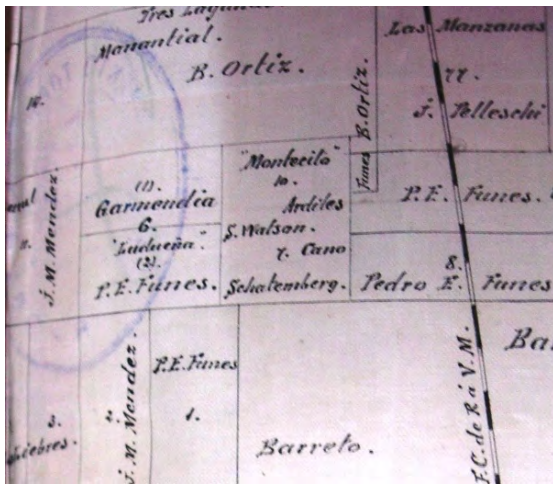 Tres Lagunas
Manantial.
B. Ortiz.
Las Manzanas
77.
J. Pelleschi
Funes B. Ortiz.
J. M. Mendez.
(1).
Garmendia
6.
"Ludueña".
(2).
P. E. Funes.
"Montecito"
10.
Ardiles
S. Watson.
7. Cano
Schatemberg.
P. E. Funes.
8.
Pedro E. Funes
3.
2.
J. M. Mendez.
P. E. Funes
1.
Barreto.
F. C. de R á V. M.